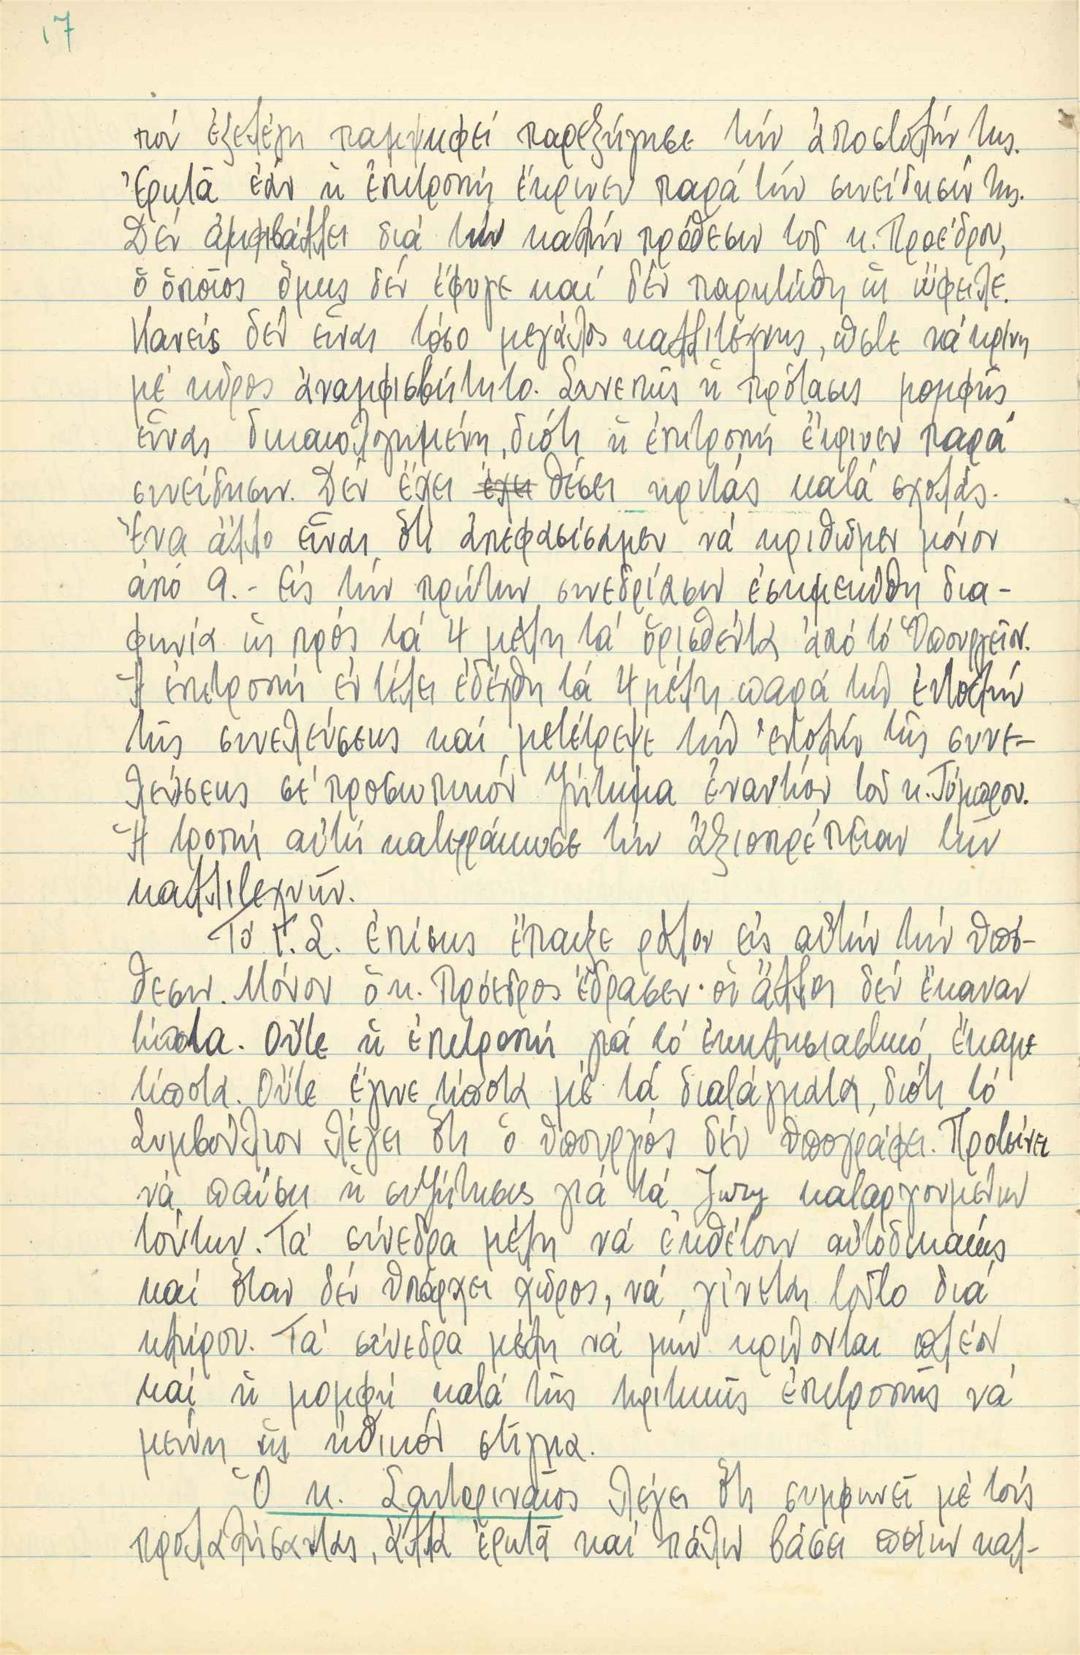 17
πού ἐξελέγη παμψηφεί παρεξήγησε τήν ἀποστολήν της.
Ἐρωτᾶ ἐάν ἡ ἐπιτροπή ἔκρινεν παρά τήν συνείδησίν της.
Δέν ἀμφιβάλλει διά τήν καλήν πρόθεσιν τοῦ κ. Προέδρου,
ὁ ὁποῖος ὅμως δέν ἔφυγε καί δέν παρητήθη ὡς ὤφειλε.
Κανείς δέν εἶναι τόσο μεγάλος καλλιτέχνης, ὥστε νά κρίνη
μέ κῦρος ἀναμφισβήτητο. Συνεπῶς ἡ πρότασις μομφῆς
εἶναι δικαιολογημένη, διότι ἡ ἐπιτροπή ἔκρινεν παρά
συνείδησιν. Δέν ἔχει ἔχει θέσει κριτάς κατά σχολάς.
Ἕνα ἄλλο εἶναι ὅτι ἀπεφασίσαμεν νά κριθῶμεν μόνον
ἀπό 9.- Εἰς τήν πρώτην συνεδρίασιν ἐσημειώθη δια-
φωνία ὡς πρός τά 4 μέλη τά ὁρισθέντα ἀπό τό Ὑπουργεῖον.
Ἡ ἐπιτροπή ἐν τέλει ἐδέχθη τά 4 μέλη παρά τήν ἐντολήν
τῆς συνελεύσεως καί μετέτρεψε τήν ἐντολήν τῆς συνε-
λεύσεως σέ προσωπικόν ζήτημα ἐναντίον τοῦ κ. Τόμπρου.
Ἡ τροπή αὐτή κατερράκωσε τήν ἀξιοπρέπειαν τῶν
καλλιτεχνῶν.
Τό Γ.Σ. ἐπίσης ἔπαιξε ρόλον εἰς αὐτήν τήν ὑπό-
θεσιν. Μόνον ὁ κ. Πρόεδρος ἔδρασεν· οἱ ἄλλοι δέν ἔκαναν
τίποτα. Οὔτε ἡ ἐπιτροπή γιά τό ἐκκλησιαστικό ἔκαμε
τίποτα. Οὔτε ἔγινε τίποτα μέ τά διατάγματα, διότι τό
Συμβούλιον λέγει ὅτι ὁ ὑπουργός δέν ὑπογράφει. Προτείνει
νά παύση ἡ συζήτησις γιά τά Jury καταργουμένων
τούτων. Τά σύνεδρα μέλη νά ἐκθέτουν αὐτοδικαίως
καί ὅταν δέν ὑπάρχει χῶρος, νά γίνεται τοῦτο διά
κλήρου. Τά σύνεδρα μέλη νά μήν κρίνονται πλέον
καί ἡ μομφή κατά τῆς κριτικῆς ἐπιτροπῆς νά
μείνη ὡς ἠθικόν στίγμα.
Ὁ κ. Σαντοριναῖος λέγει ὅτι συμφωνεῖ μέ τούς
προλαλήσαντας, ἀλλά ἐρωτᾶ καί πάλιν βάσει ποίων καλ-